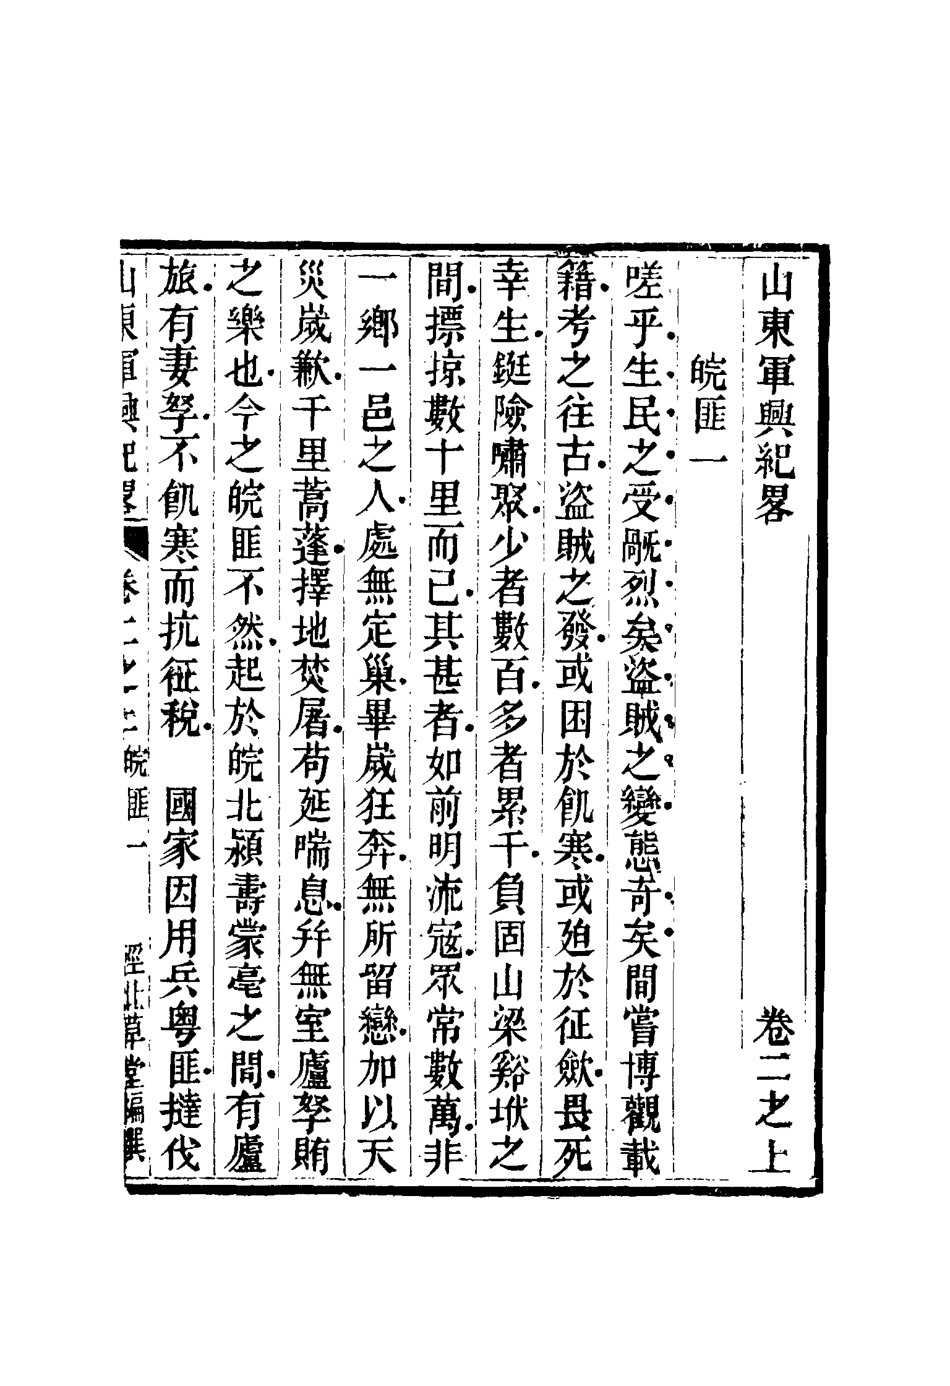 山東軍興紀畧 卷二之上
皖匪一
嗟乎生民之受𠞰烈矣盜賊之變態奇矣間嘗博觀載
籍考之往古盜賊之發或困於飢寒或廹於征歛畏死
幸生鋌險嘯聚少者數百多者累千負固山梁谿垘之
間摽掠數十里而已其甚者如前明流寇眾常數萬非
一鄉一邑之人處無定巢畢歲狂奔無所留戀加以天
災歲歉千里蒿蓬擇地焚屠苟延喘息幷無室廬孥賄
之樂也今之皖匪不然起於皖北潁壽蒙亳之間有廬
旅有妻孥不飢寒而抗征稅 國家因用兵粵匪撻伐
山東軍興紀畧 卷二之上 皖匪一 草堂編撰